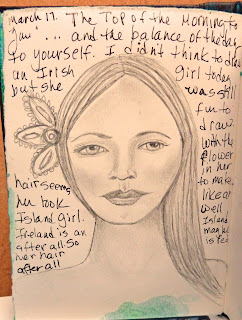 March 17. The Top of the Morning to
you"... and the balance of the day
to yourself. I didn't think to draw
an Irish girl today
but she was still
fun to
draw
with the
flower
in her
hair seems to make
her look like a
Island girl. well
Ireland is an Island
after all. So
her hair is red
after all